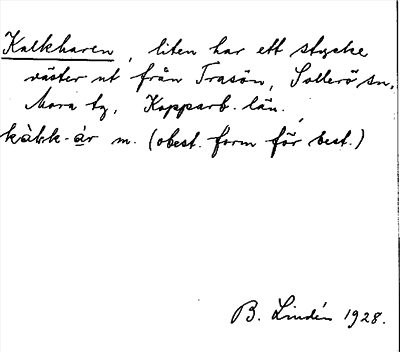 Kalkharen, liten har ett stycke
väster ut från Trasön, Sollerö sn,
Mora tg, Kopparb. län.
kàlkk-ár m. (obest. form för best.)
B. Lindén 1928.